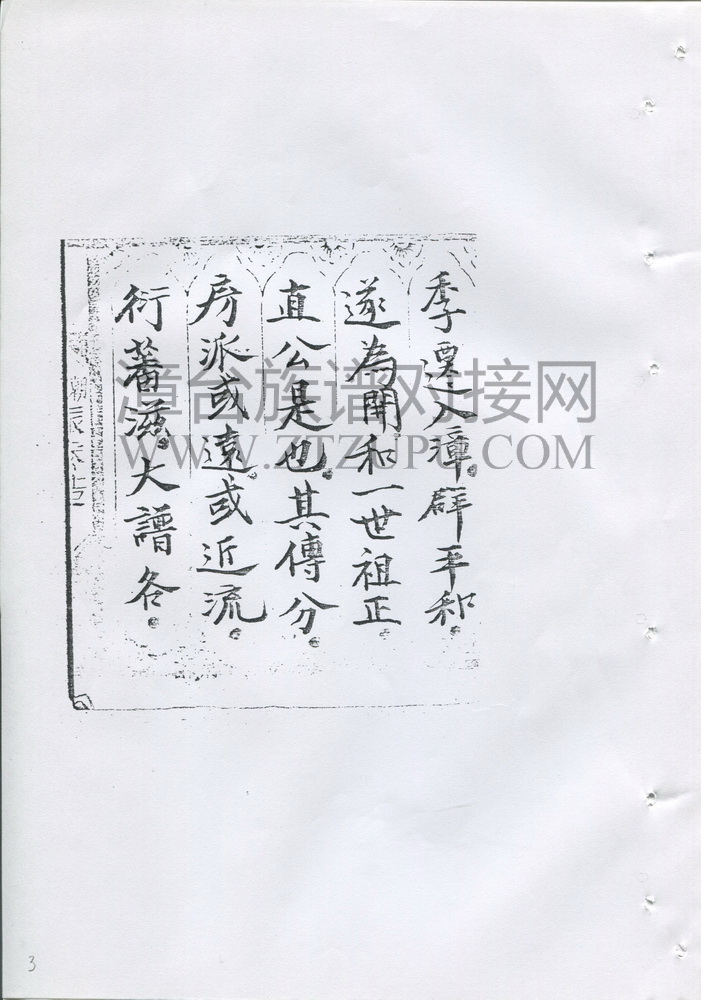 季遷入漳。辟平和。
遂為開和一世祖正。
直公是也。其傳分。
房派或遠。或近流。
衍蕃滋。大譜各。
漳台族谱对接网
WWW.ZTZUPU.COM
3